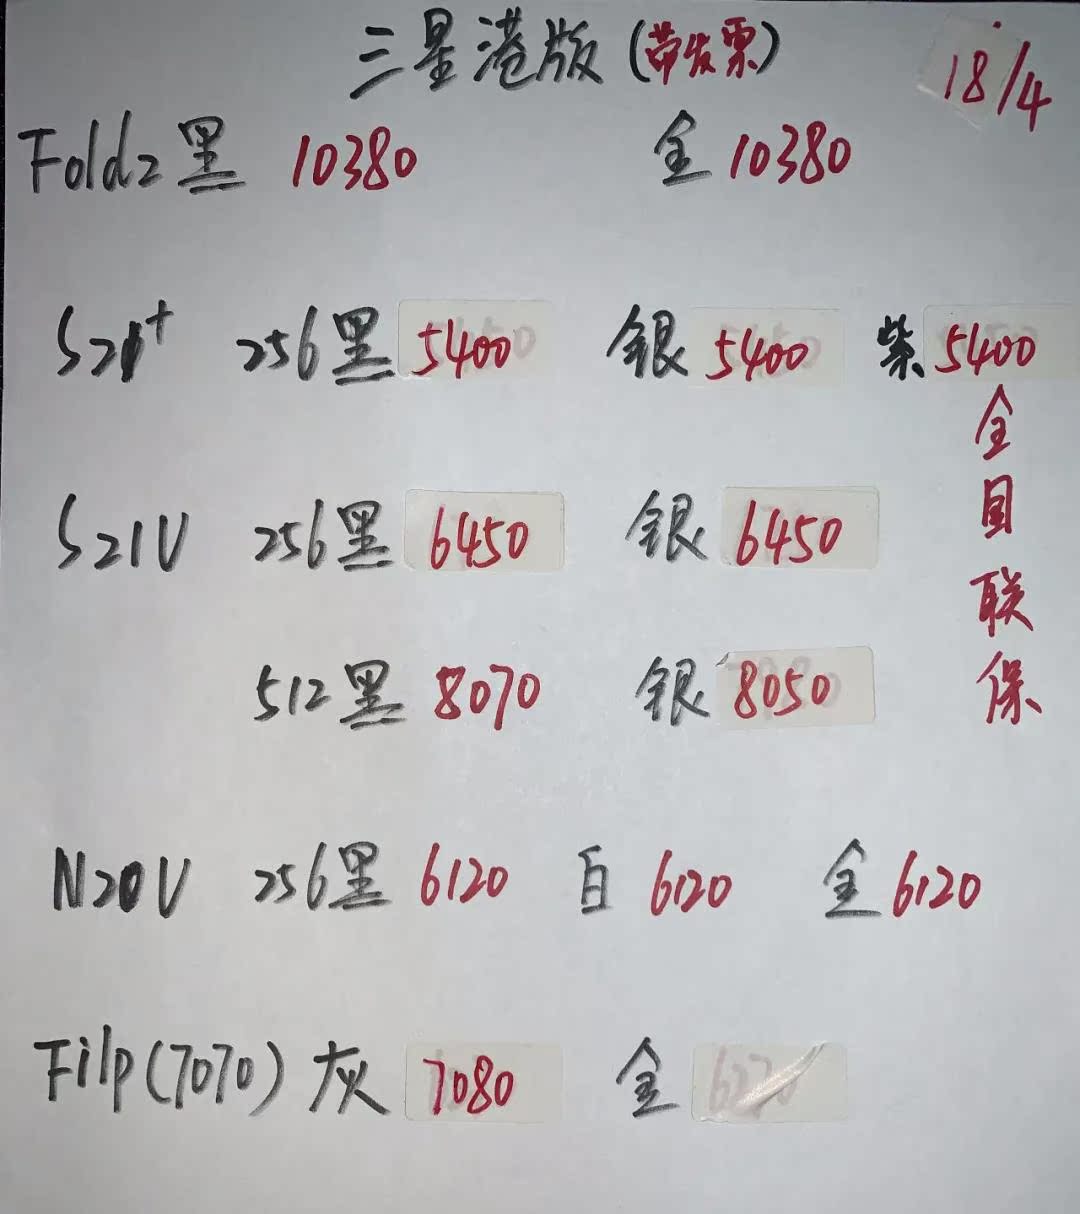 三星港版(带发票) 18/4
Fold2黑 10380 金 10380
S21+ 256黑 5400 银 5400 紫 5400
全国联保
S21U 256黑 6450 银 6450
512黑 8070 银 8050
N20U 256黑 6120 白 6120 金 6120
Filp(7070) 灰 7080 金